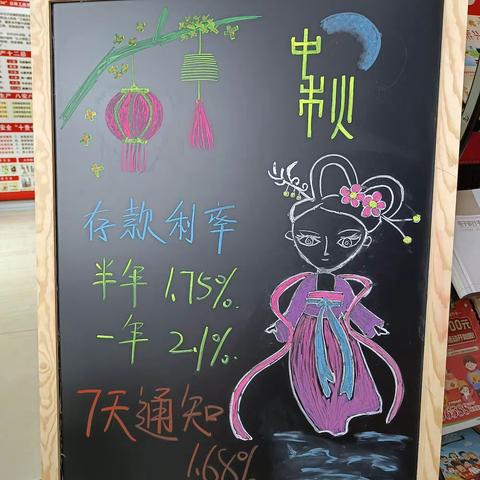 中秋
存款利率
半年 1.75%
一年 2.1%
7天通知
1.68%